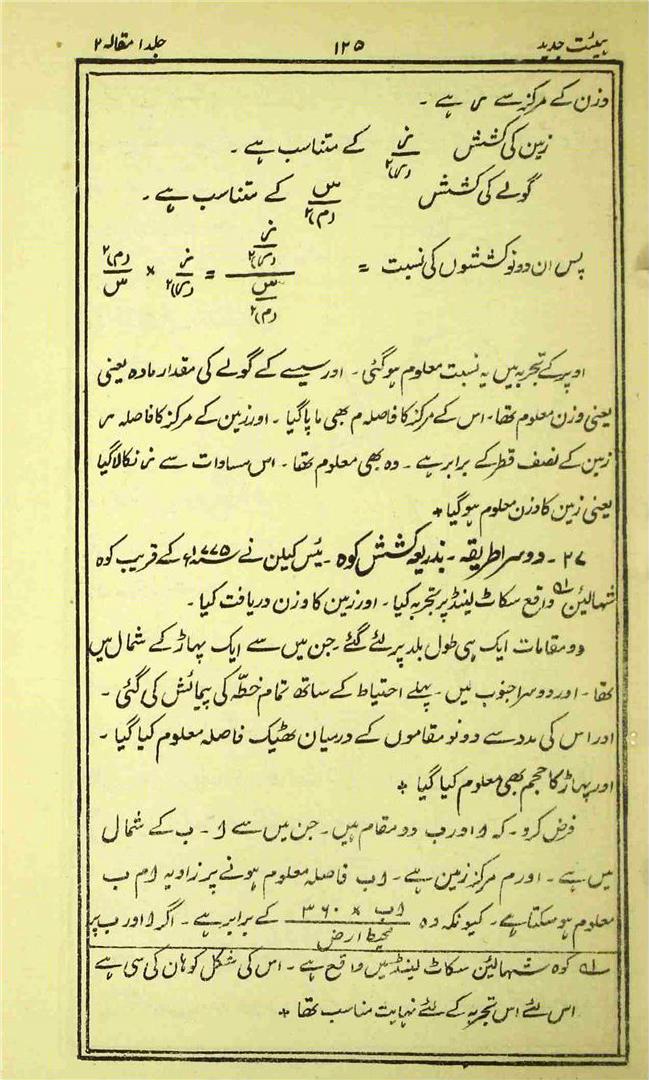 ہیئت جدید ۱۲۵ جلد ۱ مقالہ ۲
وزن کے مرکز سے ں ہے ۔
زمین کی کشش ز/(ں)۲ کے متناسب ہے ۔
گولے کی کشش س/(م)۲ کے متناسب ہے ۔
پس ان دونو کششوں کی نسبت = ز/(ں)۲ / س/(م)۲ = ز/(ں)۲ × (م)۲/س
اوپر کے تجربہ میں یہ نسبت معلوم ہو گئی ۔ اور سیسے کے گولے کی مقدار مادہ یعنی
یعنی وزن معلوم تھا ۔ اس کے مرکز کا فاصلہ م بھی ماپا گیا ۔ اور زمین کے مرکز کا فاصلہ ں
زمین کے نصف قطر کے برابر ہے ۔ وہ بھی معلوم تھا ۔ اس مساوات سے ز نکالا گیا
یعنی زمین کا وزن معلوم ہو گیا *
۲۷ ۔ دوسرا طریقہ ۔ بذریعہ کشش کوہ ۔ یٔس کیلن نے ۱۷۷۵ء کے قریب کوہ
شہالیٔن لہ واقع سکاٹ لینڈ پر تجربہ کیا ۔ اور زمین کا وزن دریافت کیا ۔
دو مقامات ایک ہی طول بلد پر لئے گئے جن میں سے ایک پہاڑ کے شمال میں
تھا ۔ اور دوسرا جنوب میں ۔ پہلے احتیاط کے ساتھ تمام خطّہ کی پیمائش کی گئی ۔
اور اس کی مدد سے دونو مقاموں کے درمیان ٹھیک فاصلہ معلوم کیا گیا ۔
اور پہاڑ کا حجم بھی معلوم کیا گیا *
فرض کرو ۔ کہ ا اور ب دو مقام ہیں ۔ جن میں سے ا ۔ ب کے شمال
میں ہے ۔ اور م مرکز زمین ہے ۔ اب فاصلہ معلوم ہونے پر زاویہ ا م ب
معلوم ہو سکتا ہے ۔ کیونکہ وہ اب × ۳۶۰ / محیط ارض کے برابر ہے ۔ اگر ا اور ب پر
لہ کوہ شہالیٔن سکاٹ لینڈ میں واقع ہے ۔ اس کی شکل کوہان کی سی ہے
اس لئے اس تجربہ کے لئے نہایت مناسب تھا *